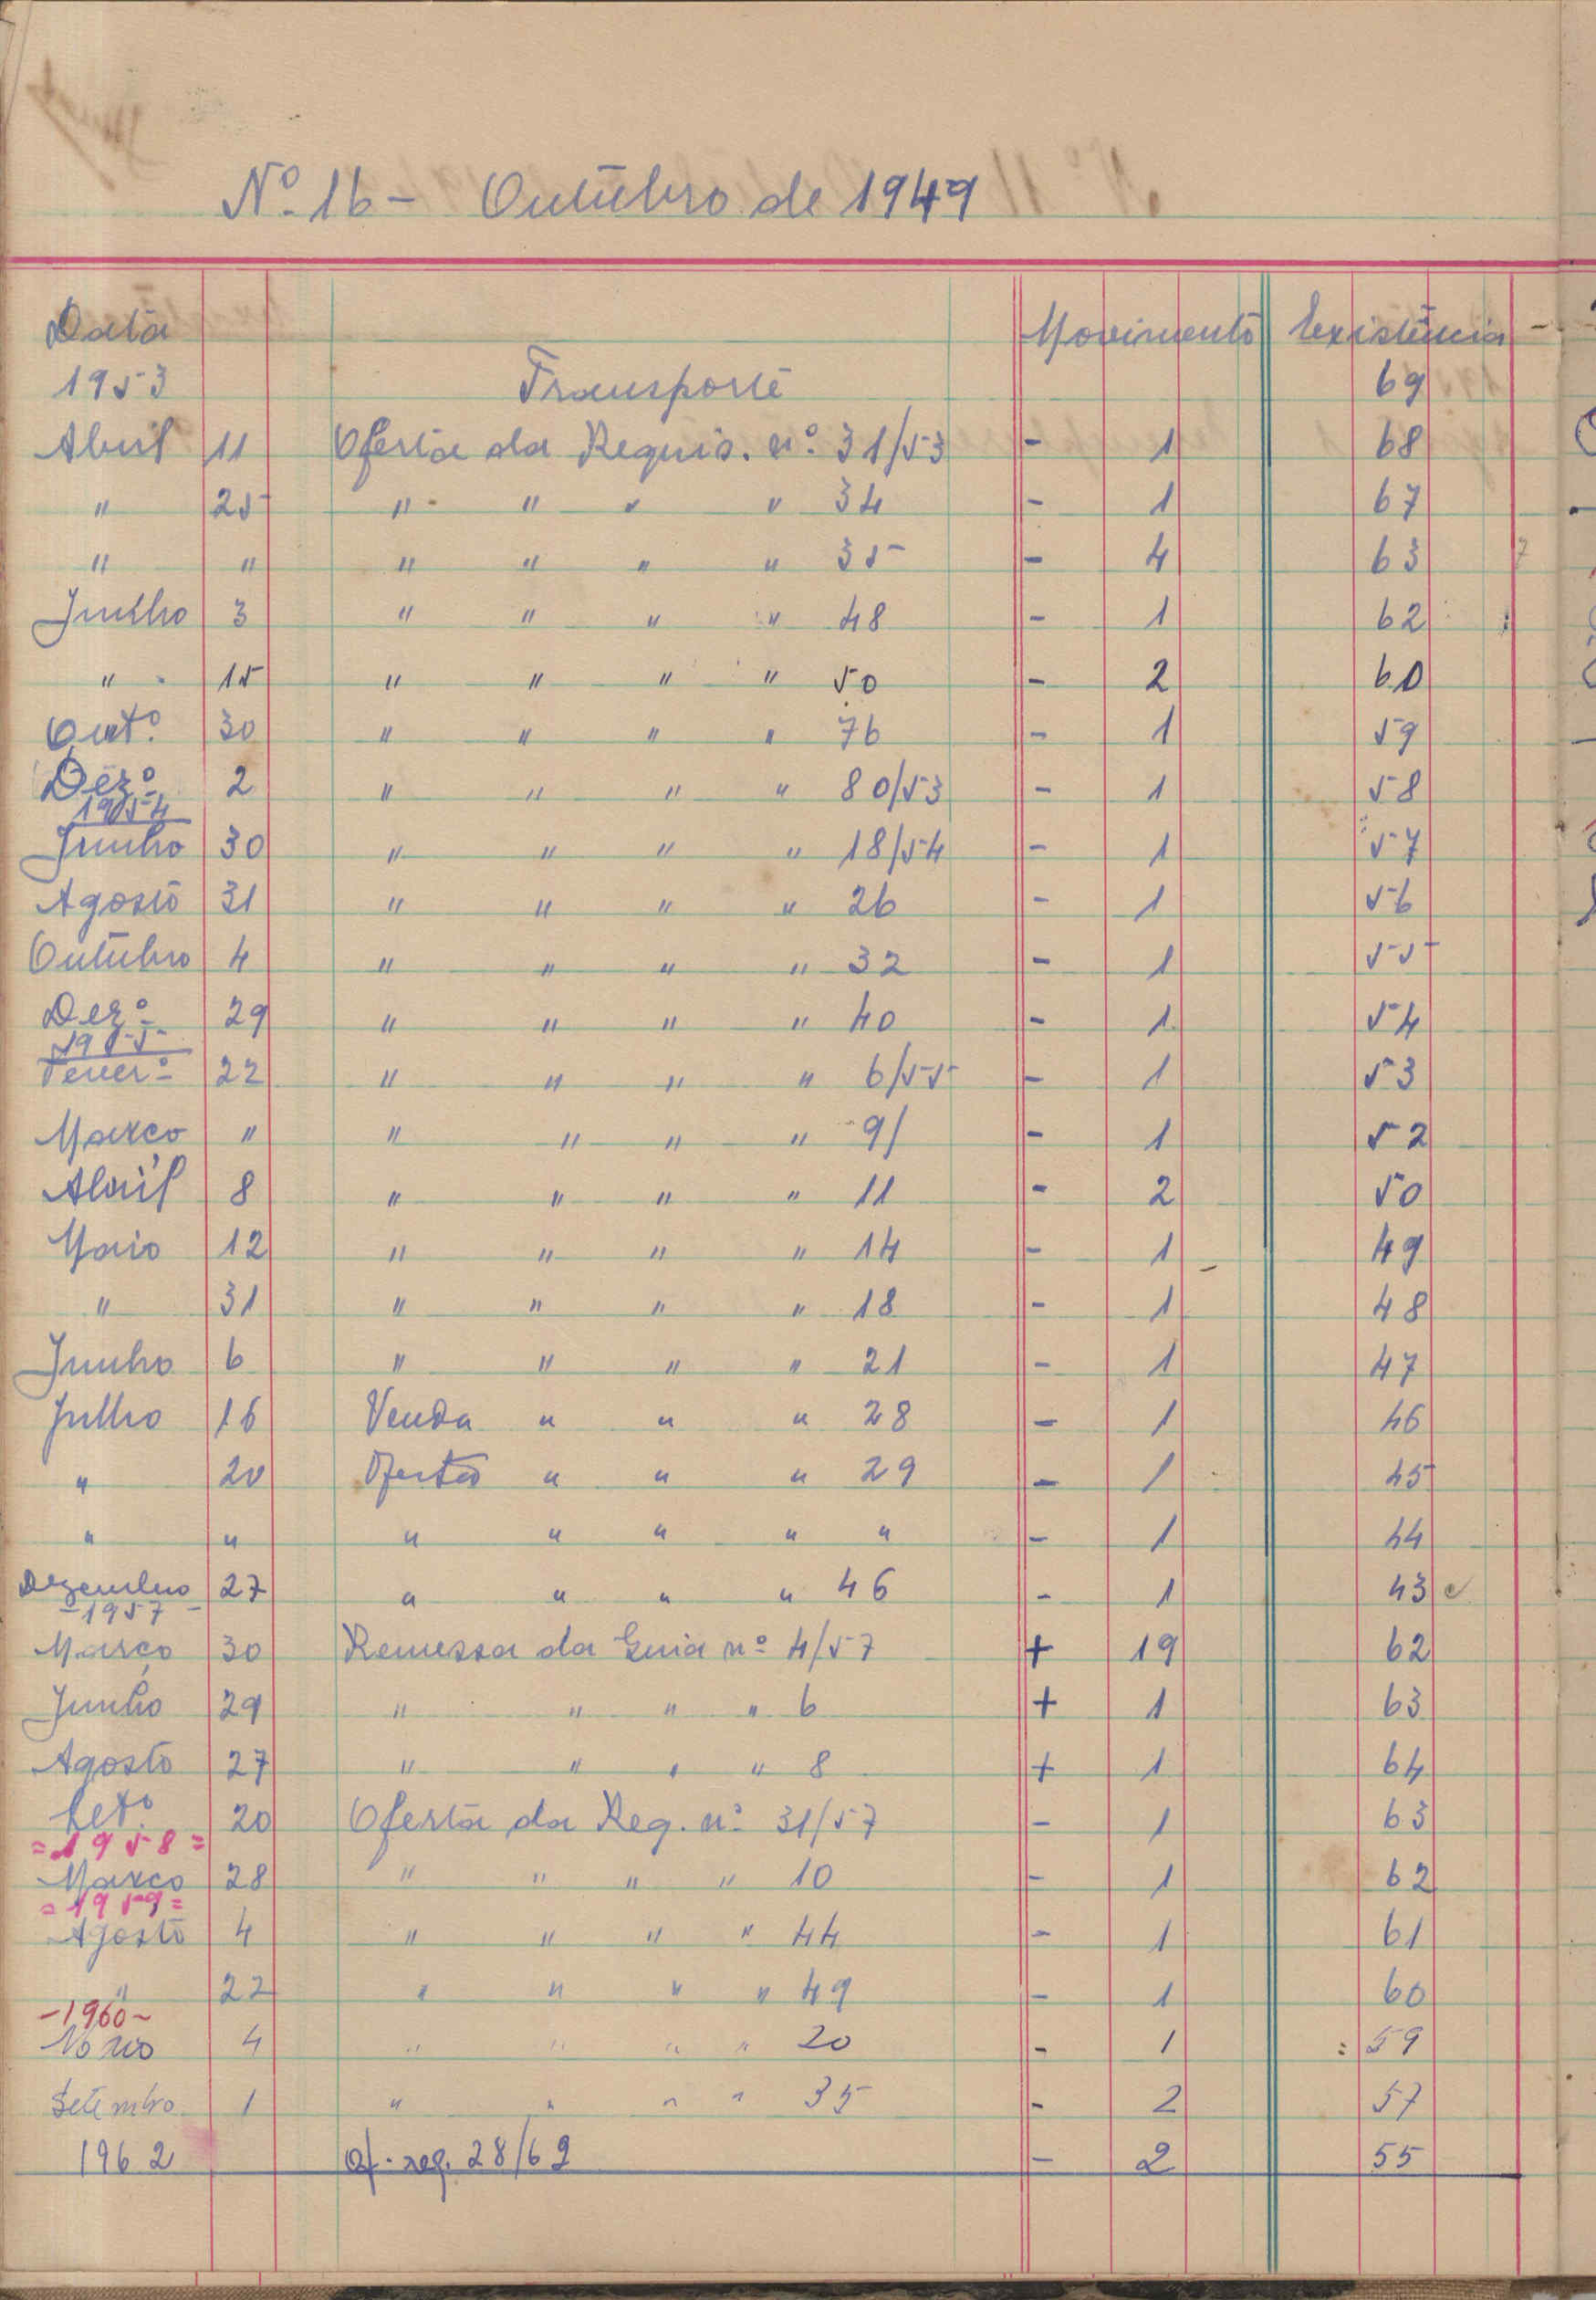 Nº 16 - Outubro de 1949
Data Movimento Existência
1953 Transporte 69
Abril 11 Oferta da Requis. nº 31/53 - 1 68
" 25 " " " " 34 - 1 67
" " " " " " 35 - 4 63
Junho 3 " " " " 48 - 1 62
" 15 " " " " 50 - 2 60
Outº 30 " " " " 76 - 1 59
Dezº 2 " " " " 80/53 - 1 58
1954
Junho 30 " " " " 18/54 - 1 57
Agosto 31 " " " " 26 - 1 56
Outubro 4 " " " " 32 - 1 55
Dezº 29 " " " " 40 - 1 54
1955
Feverº 22 " " " " 6/55 - 1 53
Março " " " " " 9/ - 1 52
Abril 8 " " " " 11 - 2 50
Maio 12 " " " " 14 - 1 49
" 31 " " " " 18 - 1 48
Junho 6 " " " " 21 - 1 47
Julho 16 Venda " " " 28 - 1 46
" 20 Ofertas " " " 29 - 1 45
" " " " " " " - 1 44
Dezembro 27 " " " " 46 - 1 43
- 1957 -
Março 30 Remessa da Guia nº 4/57 + 19 62
Junho 29 " " " " 6 + 1 63
Agosto 27 " " " " 8 + 1 64
Setº 20 Oferta da Req. nº 31/57 - 1 63
= 1958 =
Março 28 " " " " 10 - 1 62
= 1959 =
Agosto 4 " " " " 44 - 1 61
" 22 " " " " 49 - 1 60
- 1960 -
4 " " " " 20 - 1 59
Setembro 1 " " " " 35 - 2 57
1962 Of. req. 28/62 - 2 55